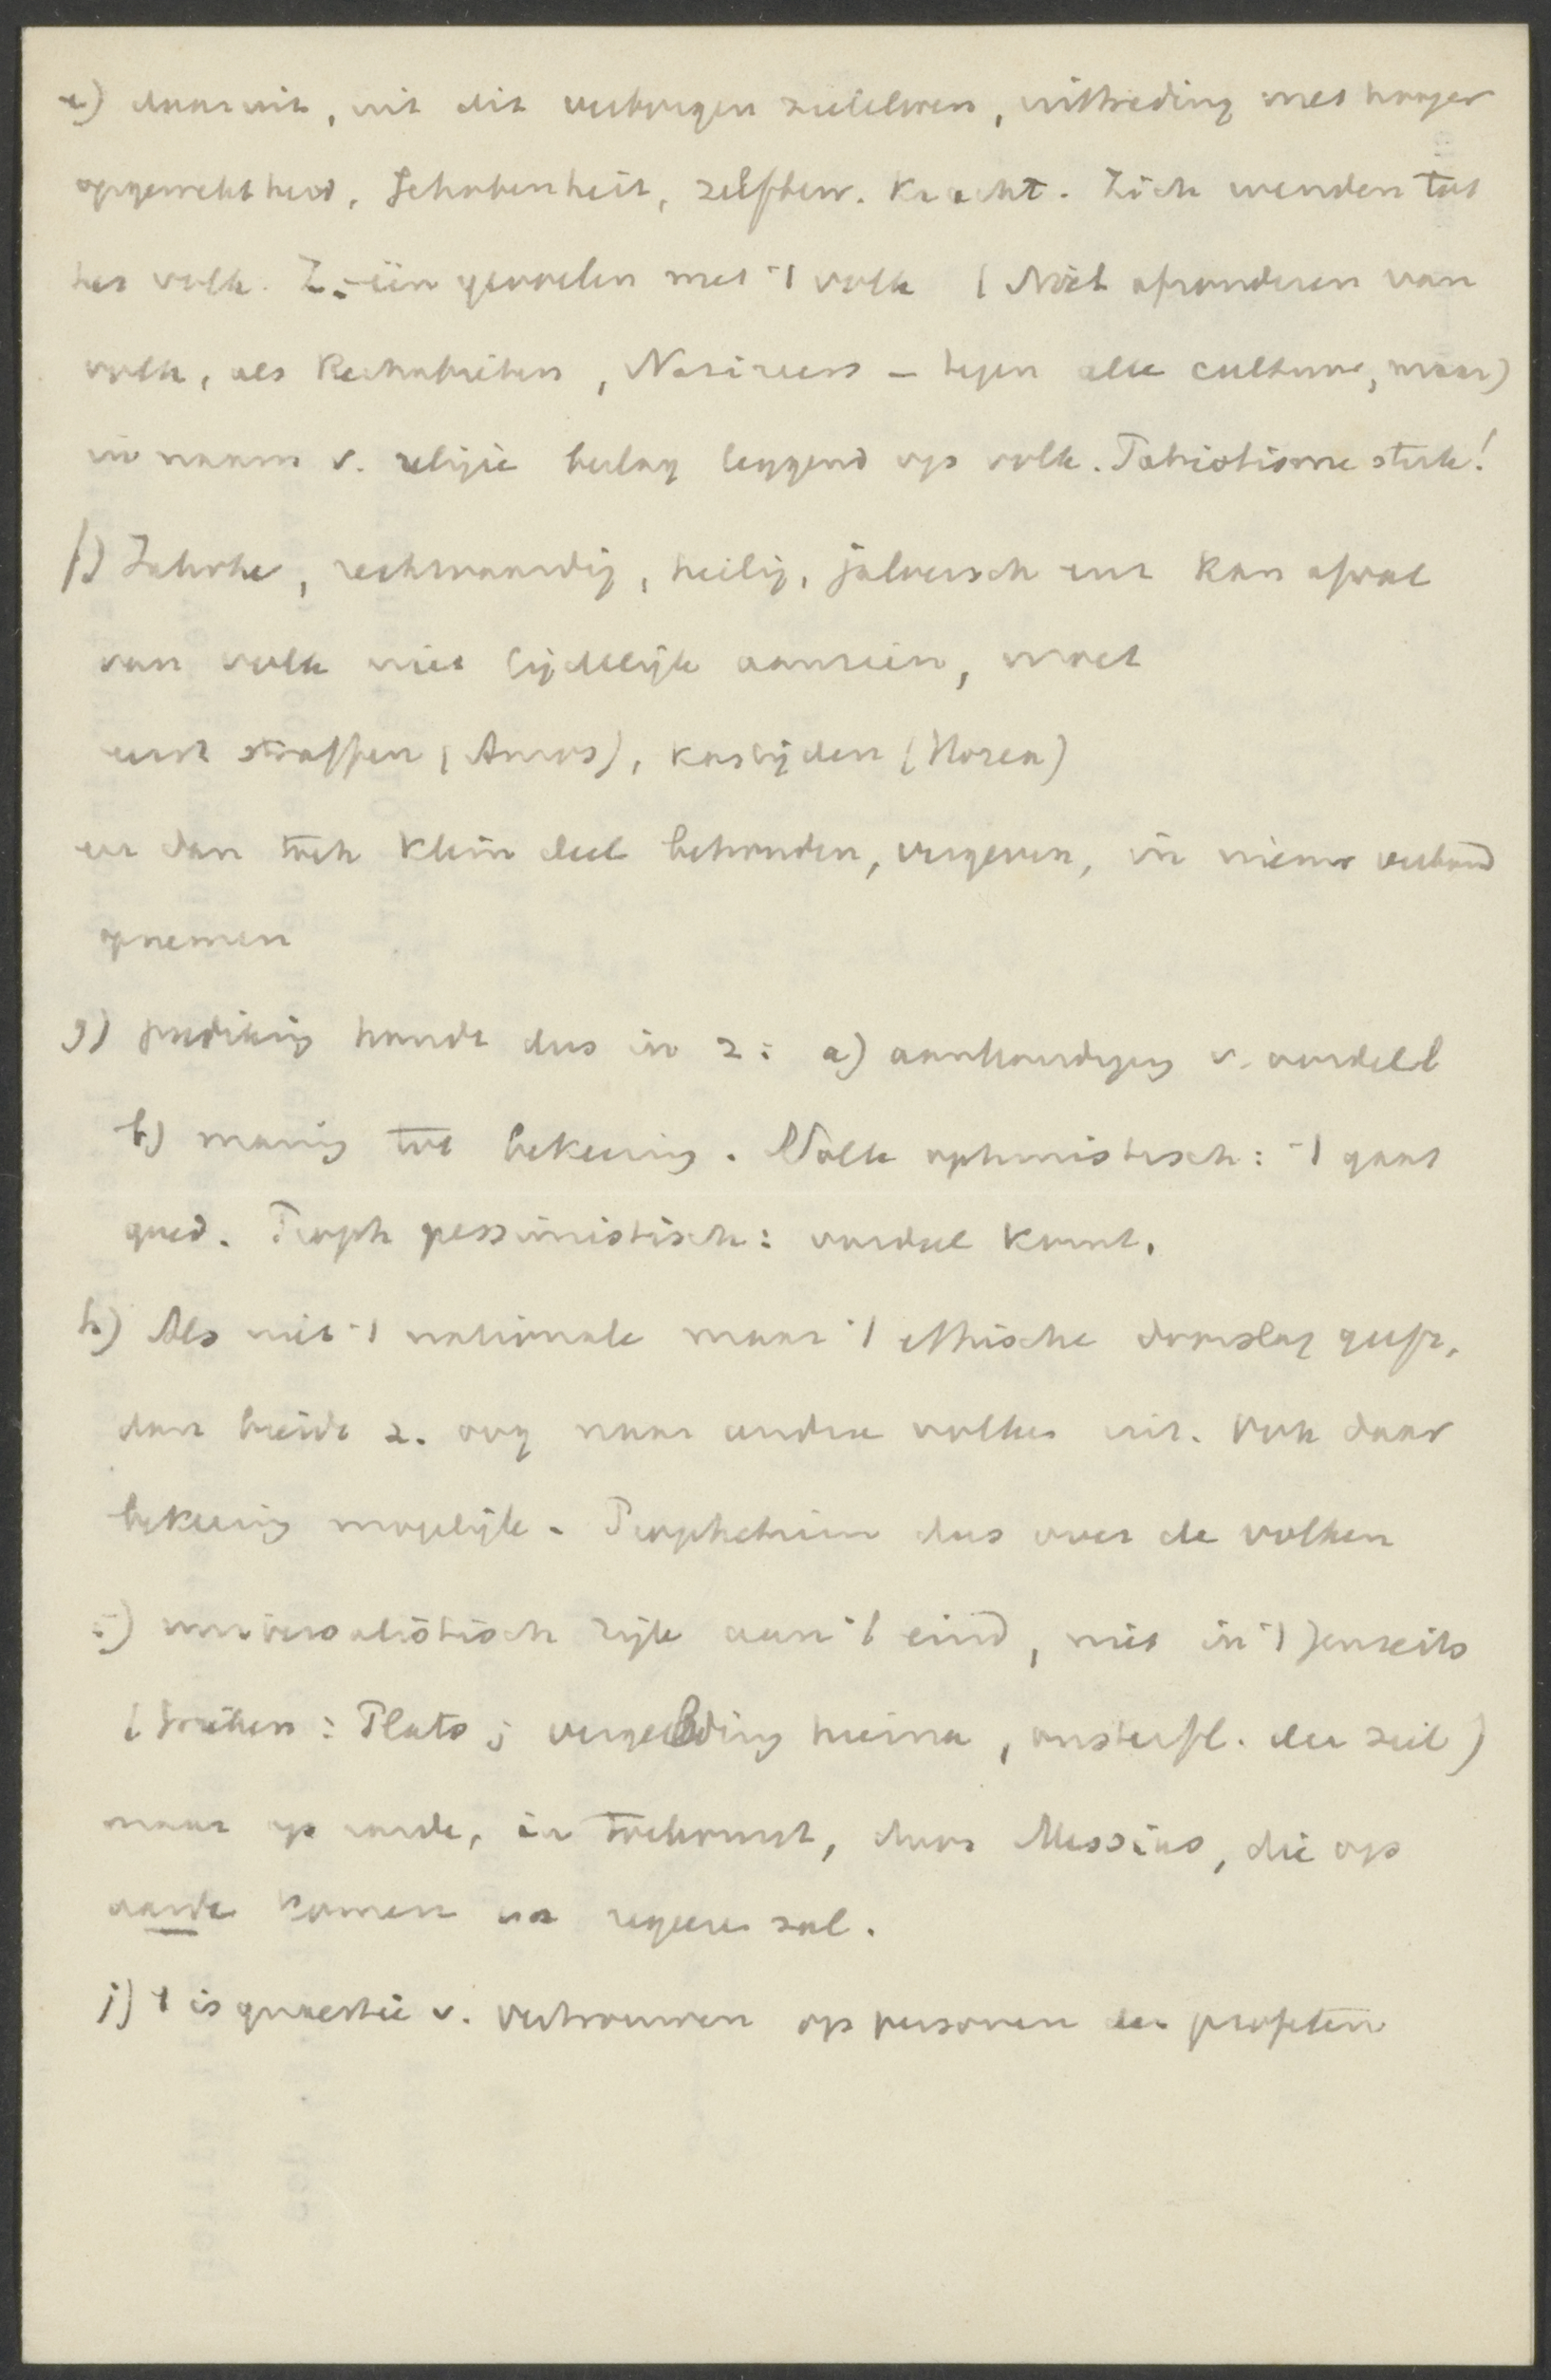 e) daaruit, uit dit verborgen zieleleven, uittreding met hooger
opgewektheid, Gehobenheit, zelfbew. kracht. Zich wenden tot
het volk. Z. één gevoelen met 't volk (Niet afzonderen van
volk, als Rechabieten, Nazireers – tegen alle cultuur, maar)
in naam v. religie beslag leggend op volk. Patriotisme sterk!
f) Jahwhe, rechtvaardig, heilig, jaloersch enz kan afval
van volk niet lijdelijk aanzien, moet
eerst straffen (Amos), kastijden (Hosea)
en dan toch klein deel behouden, vergeven, in nieuw verband
opnemen
g) prediking houdt dus in 2: a) aankondiging v. oordeel
b) maning tot bekeering. Volk optimistisch: 't gaat
goed. Proph pessimistisch: oordeel komt.
h) Als niet 't nationale maar 't ethische doorslag geeft,
dan breidt z. oog naar andere volken uit. Ook daar
bekeering mogelijk. Prophetieën dus over de volken
i) universalistisch rijk aan 't eind, niet in 't Jenseits
(Grieken: Plato; vergelding hierna, onsterfl. der ziel)
maar op aarde, in toekomst, door Messias, die op
aarde komen en regeeren zal.
j) 't is quaestie v. vertrouwen op personen der profeten